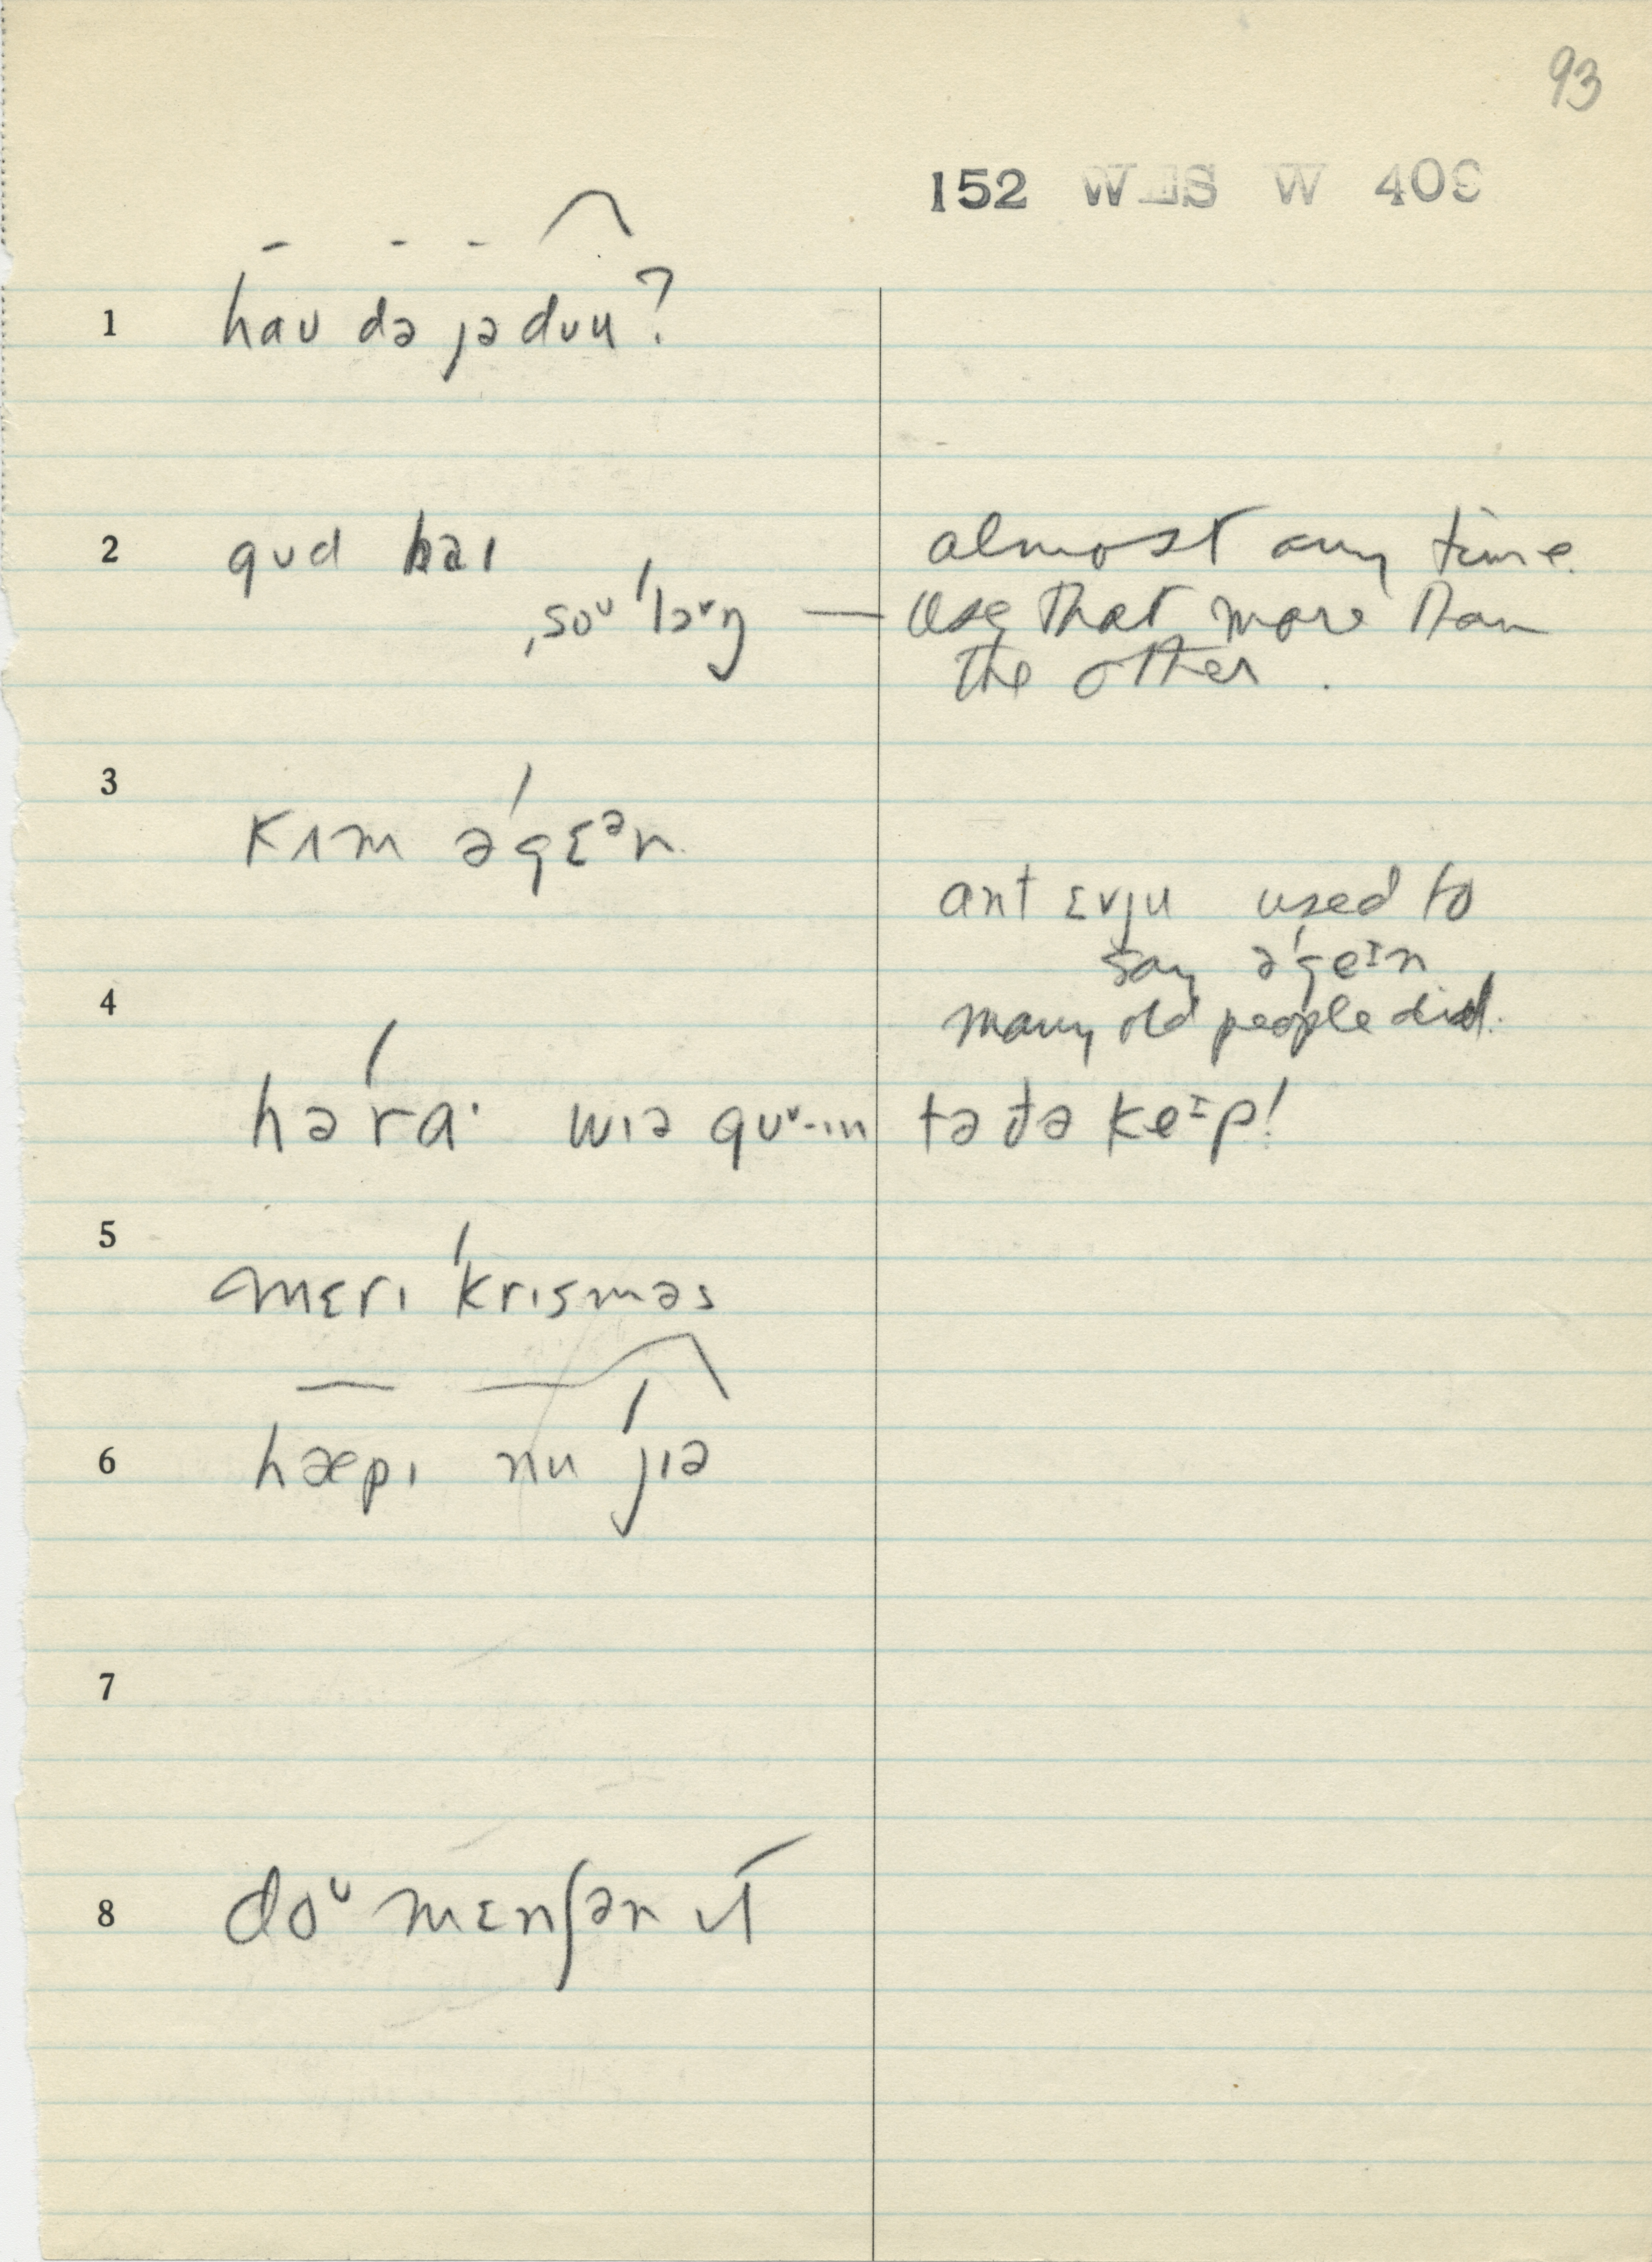 93
152 WES W 409
1 haʊ də jə dʊu?
2 gʊd baɪ
ˌsoᶷ ˈlɔᵛŋ — almost any time.
Use that more than
the other.
3 kɪm əˈgɛᵊn
ant ɛvju used to
say əˈgeᶦn
many old people did.
4
həˈra· wɪə gʊᵛ-ɪn tə ðə keᶦp!
5 mɛrɪ ˈkrɪsməs
6 hæpɪ nu ˈjɪə
7
8 doᶷ mɛnʃən ɪt